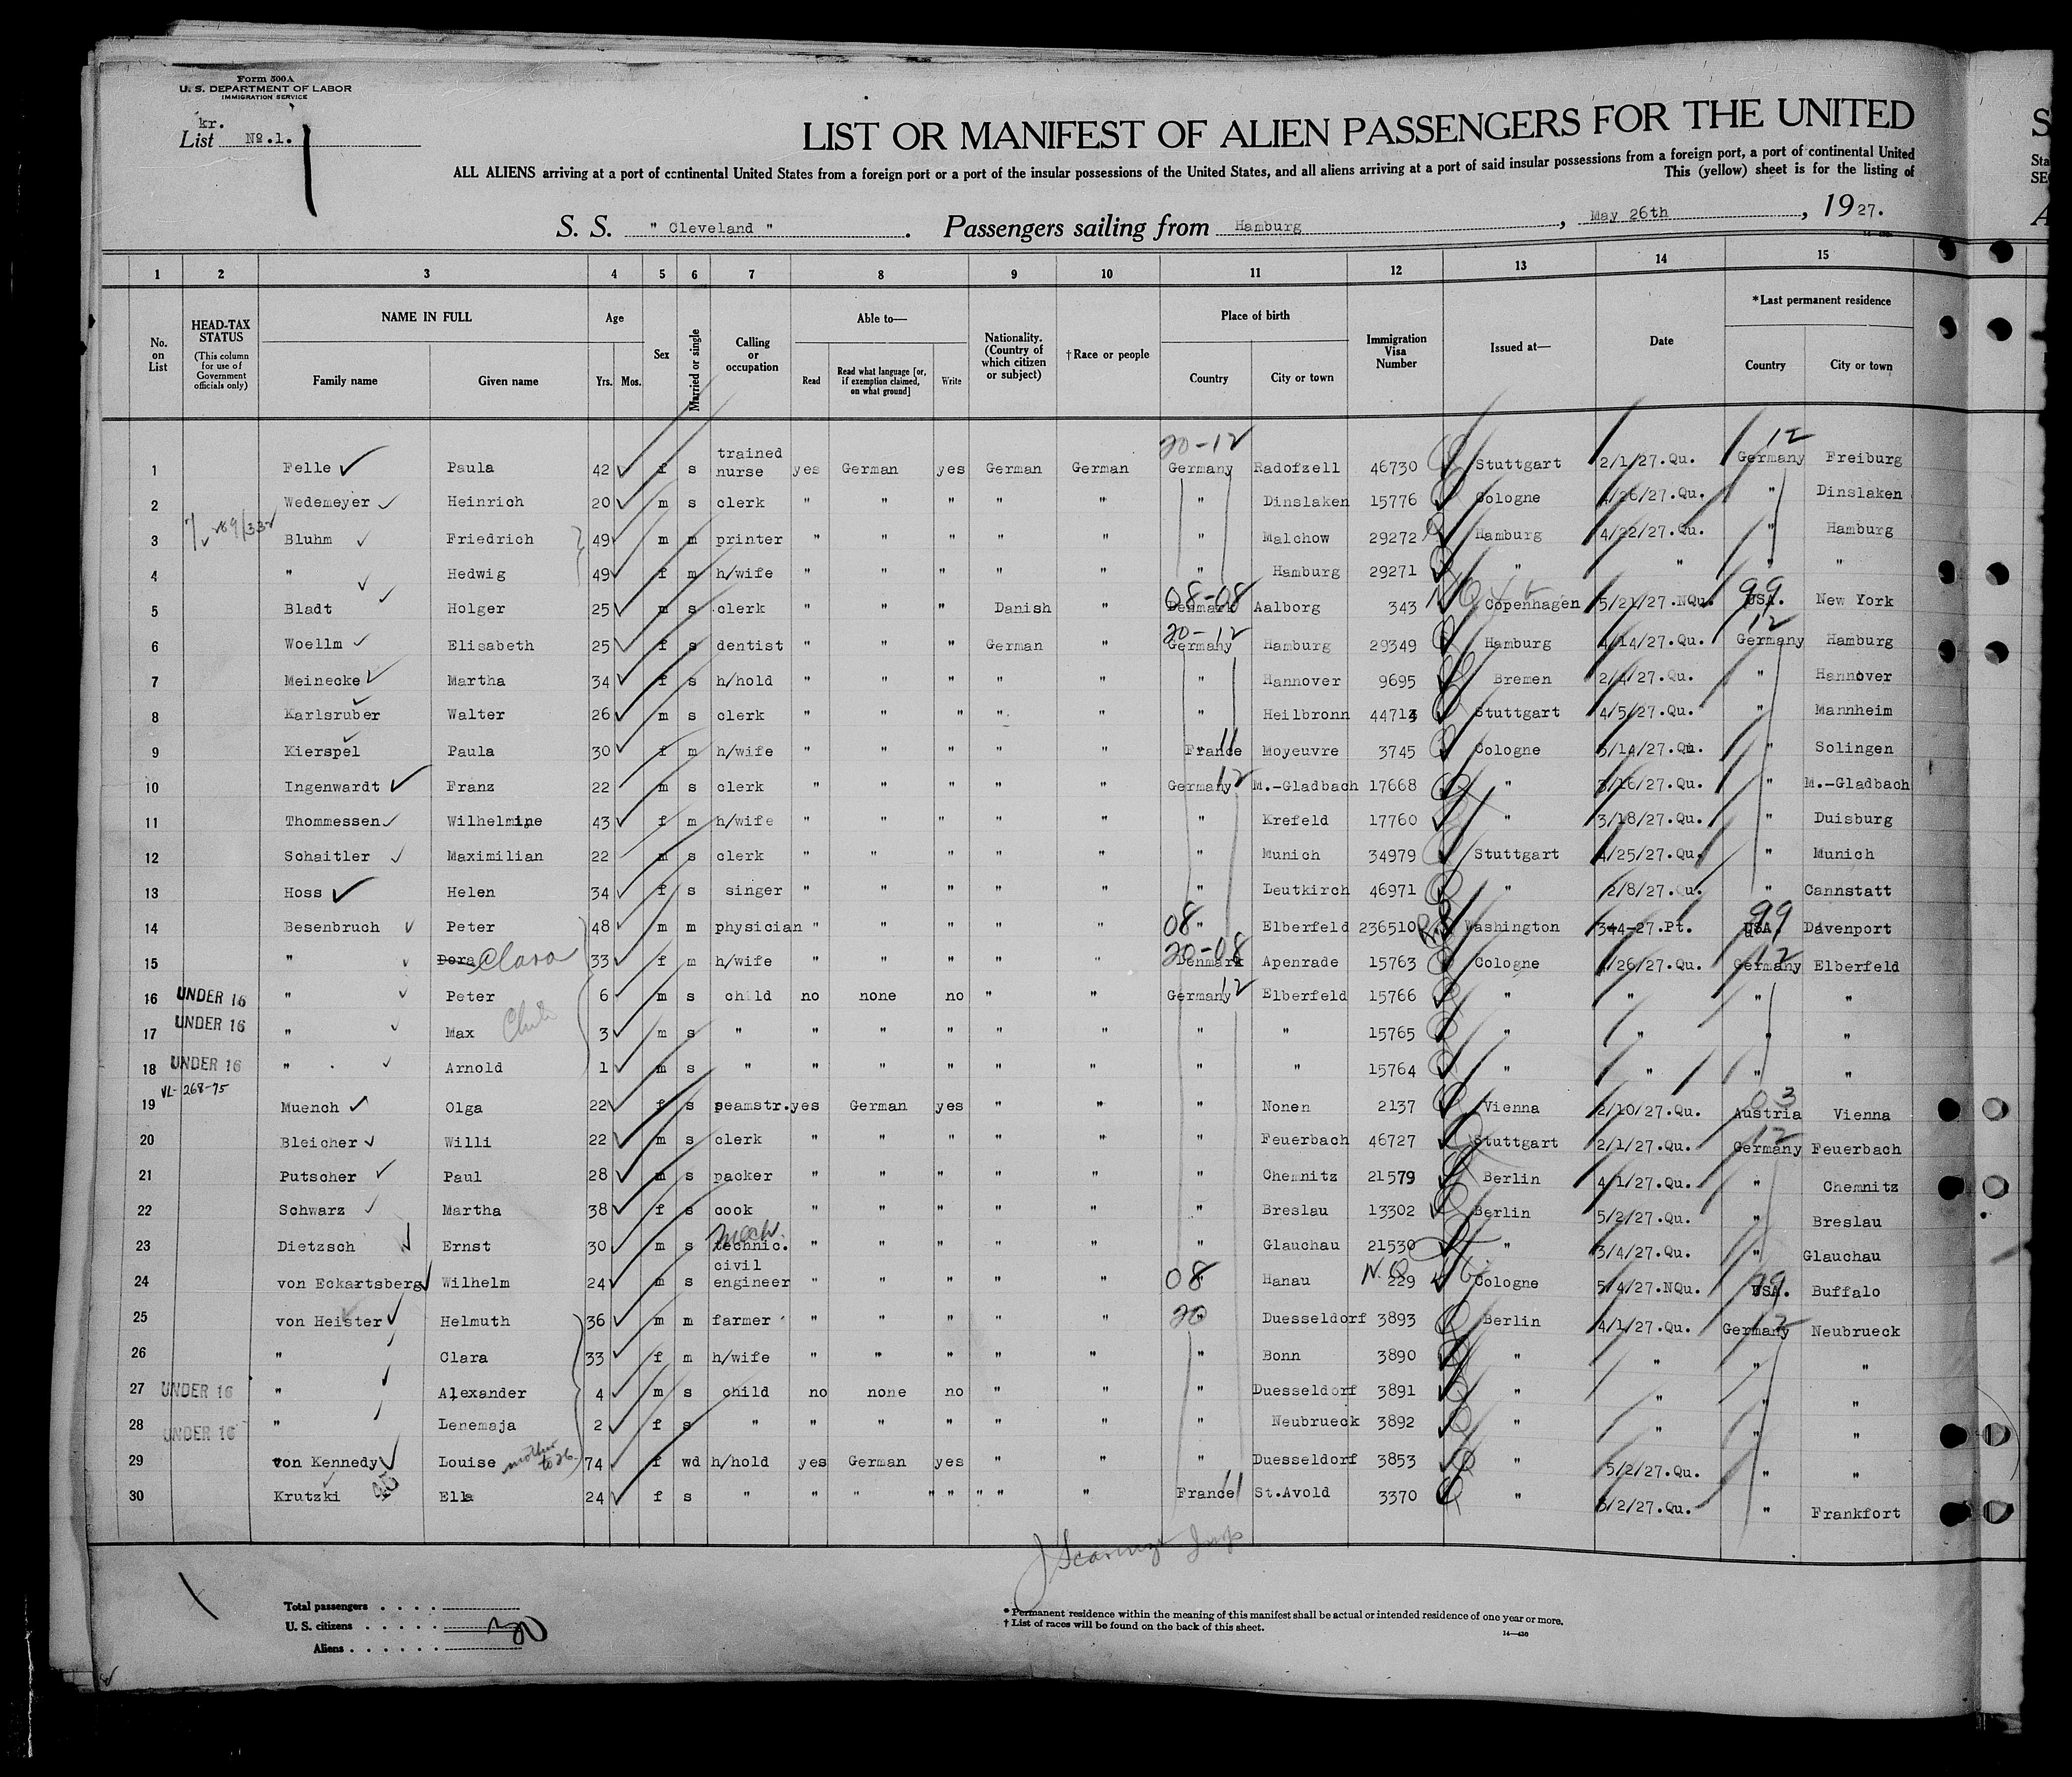 Form 500A
U. S. DEPARTMENT OF LABOR
IMMIGRATION SERVICE
kr.
List No.1.
LIST OR MANIFEST OF ALIEN PASSENGERS FOR THE UNITED
ALL ALIENS arriving at a port of continental United States from a foreign port or a port of the insular possessions of the United States, and all aliens arriving at a port of said insular possessions from a foreign port, a port of continental United
This (yellow) sheet is for the listing of
S. S. " Cleveland " . Passengers sailing from Hamburg , May 26th , 1927.
1 2 3 4 5 6 7 8 9 10 11 12 13 14 15
No. on List HEAD-TAX STATUS (This column for use of Government officials only) NAME IN FULL Family name Given name Age Yrs. Mos. Sex Married or single Calling or occupation Able to— Read Read what language [or, if exemption claimed, on what ground] Write Nationality. (Country of which citizen or subject) †Race or people Place of birth Country City or town Immigration Visa Number Issued at— Date *Last permanent residence Country City or town
20-12 12
1 Felle Paula 42 f s trained nurse yes German yes German German Germany Radofzell 46730 Stuttgart 2/1/27.Qu. Germany Freiburg
2 Wedemeyer Heinrich 20 m s clerk " " " " " " Dinslaken 15776 Cologne 4/26/27.Qu. " Dinslaken
3 Bluhm Friedrich 49 m m printer " " " " " " Malchow 29272 Hamburg 4/22/27.Qu. " Hamburg
4 " Hedwig 49 f m h/wife " " " " " " Hamburg 29271 " " " "
08-08 99
5 Bladt Holger 25 m s clerk " " " Danish " Denmark Aalborg 343 Copenhagen 5/21/27.NQu. USA. New York
20-12 12
6 Woellm Elisabeth 25 f s dentist " " " German " Germany Hamburg 29349 Hamburg 4/14/27.Qu. Germany Hamburg
7 Meinecke Martha 34 f s h/hold " " " " " " Hannover 9695 Bremen 2/4/27.Qu. " Hannover
8 Karlsruher Walter 26 m s clerk " " " " " " Heilbronn 44713 Stuttgart 4/5/27.Qu. " Mannheim
9 Kierspel Paula 30 f m h/wife " " " " " France 11 Moyeuvre 3745 Cologne 3/14/27.Qu. " Solingen
10 Ingenwardt Franz 22 m s clerk " " " " " Germany 12 M.-Gladbach 17668 " 3/16/27.Qu. " M.-Gladbach
11 Thommessen Wilhelmine 43 f m h/wife " " " " " " Krefeld 17760 " 3/18/27.Qu. " Duisburg
12 Schaitler Maximilian 22 m s clerk " " " " " " Munich 34979 Stuttgart 4/25/27.Qu. " Munich
13 Hoss Helen 34 f s singer " " " " " " Leutkirch 46971 " 2/8/27.Qu. " Cannstatt
14 Besenbruch Peter 48 m m physician " " " " " 08 " Elberfeld 236510 Washington 3-4-27.Pt. 99 USA. Davenport
15 " Dora Clara 33 f m h/wife " " " " " 20-08 Denmark Apenrade 15763 Cologne 4/26/27.Qu. 12 Germany Elberfeld
16 UNDER 16 " Peter 6 m s child no none no " " Germany 12 Elberfeld 15766 " " " "
17 UNDER 16 " Max 3 m s " " " " " " " " 15765 " " " "
18 UNDER 16 " Arnold 1 m s " " " " " " " " 15764 " " " "
VL-268-75
19 Muench Olga 22 f s seamstr. yes German yes " " " Nonen 2137 Vienna 2/10/27.Qu. 03 Austria Vienna
20 Bleicher Willi 22 m s clerk " " " " " " Feuerbach 46727 Stuttgart 2/1/27.Qu. 12 Germany Feuerbach
21 Putscher Paul 28 m s packer " " " " " " Chemnitz 21579 Berlin 4/1/27.Qu. " Chemnitz
22 Schwarz Martha 38 f s cook " " " " " " Breslau 13302 Berlin 5/2/27.Qu. " Breslau
23 Dietzsch Ernst 30 m s mech. technic. " " " " " " Glauchau 21530 " 3/4/27.Qu. " Glauchau
24 von Eckartsberg Wilhelm 24 m s civil engineer " " " " " 08 Hanau N.Q. 229 Cologne 5/4/27.NQu. 99 USA. Buffalo
25 von Heister Helmuth 36 m m farmer " " " " " 20 Duesseldorf 3893 Berlin 4/1/27.Qu. 12 Germany Neubrueck
26 " Clara 33 f m h/wife " " " " " " Bonn 3890 " " " "
27 UNDER 16 " Alexander 4 m s child no none no " " " Duesseldorf 3891 " " " "
28 UNDER 16 " Lenemaja 2 f s " " " " " " " Neubrueck 3892 " " " "
29 von Kennedy Louise mother to 26 74 f wd h/hold yes German yes " " " Duesseldorf 3853 " 5/2/27.Qu. " "
30 Krutzki Ella 24 f s " " " " " " " France 11 St.Avold 3370 " 5/2/27.Qu. " Frankfort
Total passengers
U. S. citizens
Aliens
30
* Permanent residence within the meaning of this manifest shall be actual or intended residence of one year or more.
† List of races will be found on the back of this sheet.
14—430